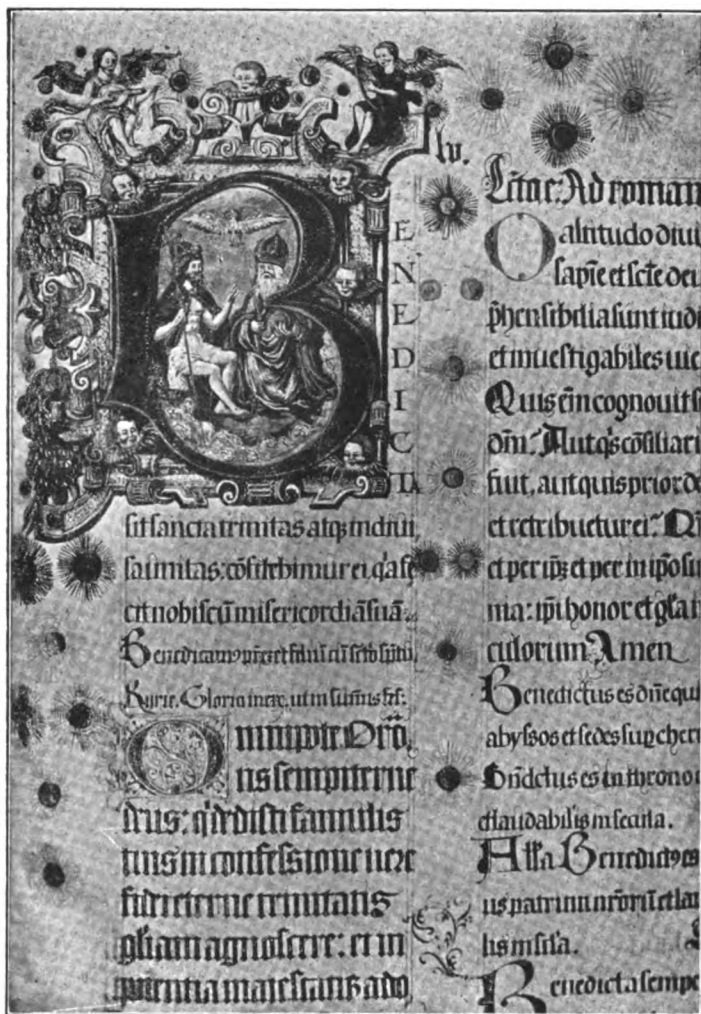 lv.
BENEDICTA
sit sancta trinitas atq; indiui
sa unitas: cōfitebimur ei q̇a fe
cit nobiscū misericordiā suā.
Benedicam9 pr̄ez et filiū cū sc̄to sp̄itu
Kyrie. Gloria in exc. ut in sūmis fes:
Omnipote Orō.
ns sempiterne
deus: q̇ dedisti famulis
tuis in confessione uere
fidei eterne trinitatis
gl̄iam agnoscere: et in
potentia maiestatis ado
Lc̄io ep. Ad roman
O altitudo diui
sapīe et sc̄īe dei
p̄hensibilia sunt iudi
et inuestigabiles uie
Quis ēim cognouit se
dn̄i? Aut q̇s cōsiliari
fuit, aut quis prior de
et retribuetur ei? Qm̄
et per ip̄z et per in ip̄o su
ma: ip̄i honor et gl̄a in
culorum Amen
Benedictus es dn̄e qui
abyssos et sedes sup cheru
Bn̄dctus es in throno r
et laudabilis in secula.
All̄a Benedict9 es
us patrum nr̄orū et lau
lis in sc̄la.
Benedicta sempe